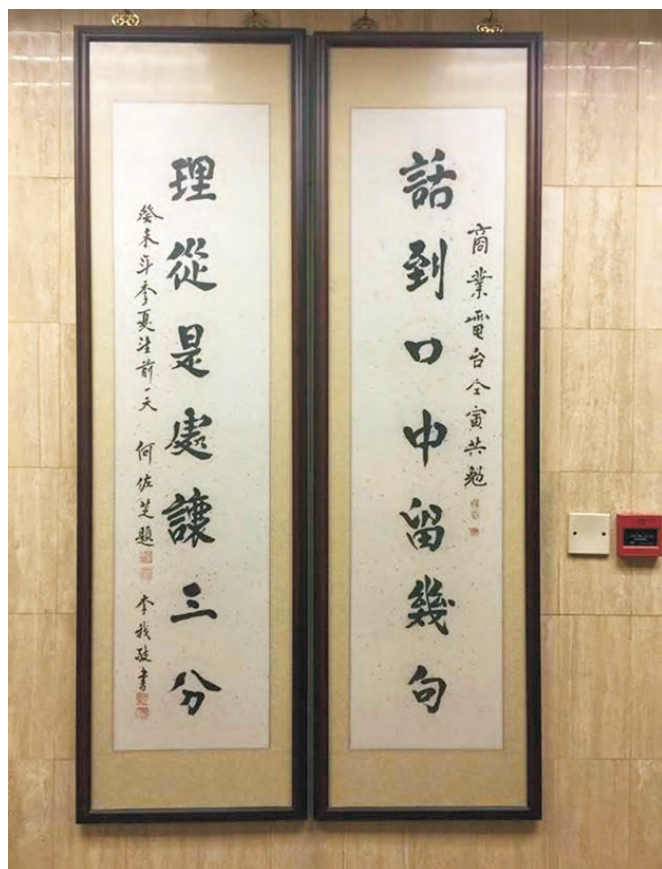 商業電台仝寅共勉
話到口中留幾句
理從是處讓三分
癸未年季夏前一天 何佐芝題 李我敬書